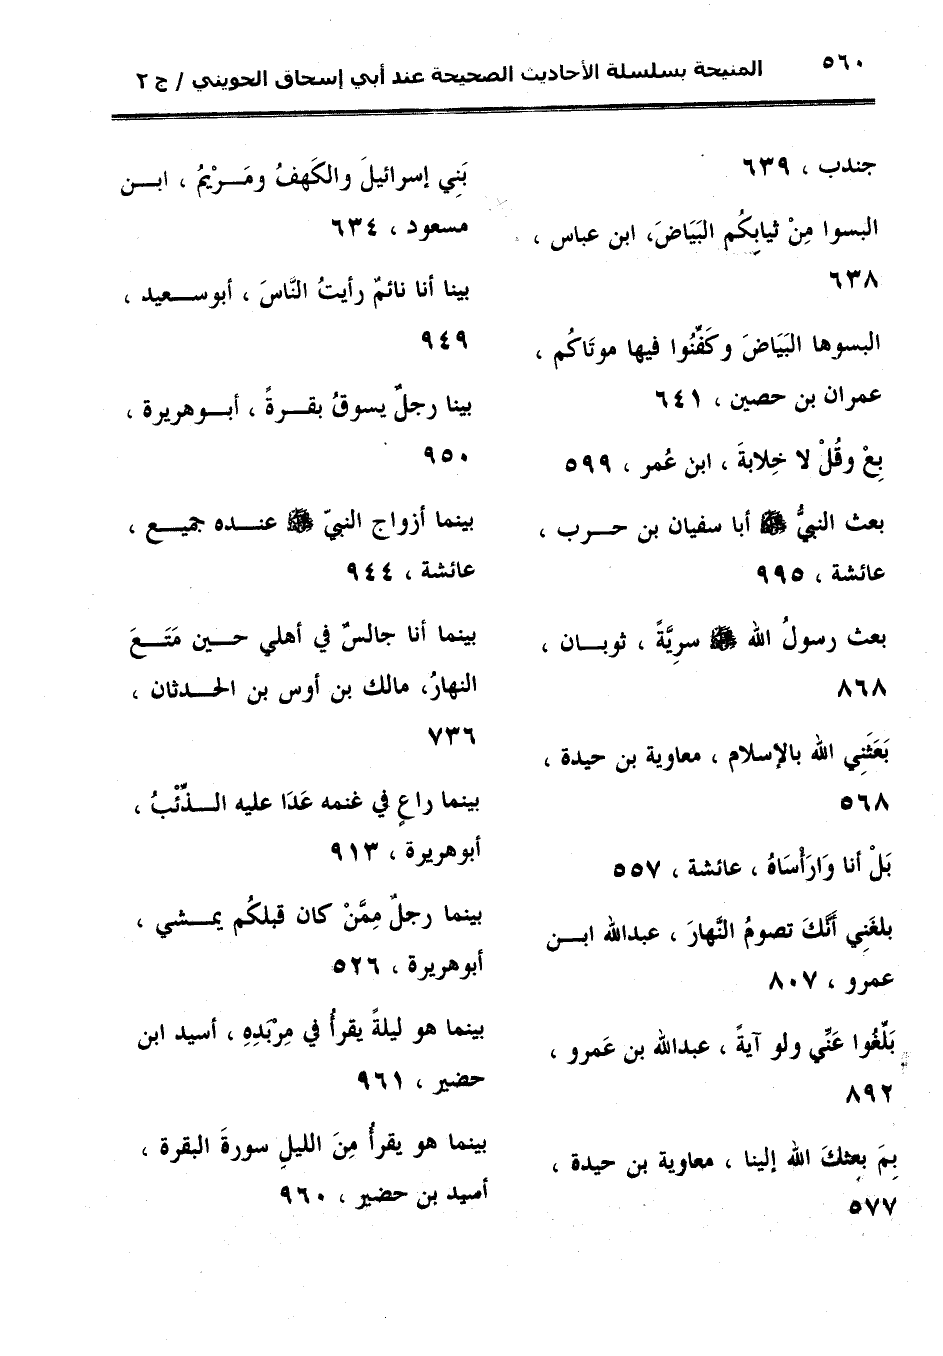 ٥٦٠
المنيحة بسلسلة الأحاديث الصحيحة عند أبي إسحاق الحويني / ج ٢
جندب ، ٦٣٩
البسوا مِنْ ثيابِكُم البَيَاضَ، ابن عباس ،
٦٣٨
البسوها البَيَاضَ وكَفِّنُوا فيها موتَاكُم ،
عمران بن حصين ، ٦٤١
بِعْ وقُلْ لا خِلابةَ ، ابن عُمر ، ٥٩٩
بعث النبيُّ ﷺ أبا سفيان بن حرب ،
عائشة ، ٩٩٥
بعث رسولُ الله ﷺ سريَّةً ، ثوبان ،
٨٦٨
بَعَثَنِي الله بالإسلام ، معاوية بن حيدة ،
٥٦٨
بَلْ أنا وَارَأْسَاهُ ، عائشة ، ٥٥٧
بلغَنِي أَنَّكَ تصومُ النَّهارَ ، عبدالله ابن
عمرو ، ٨٠٧
بَلِّغُوا عَنِّي ولو آيةً ، عبدالله بن عَمرو ،
٨٩٢
بِمَ بعثكَ الله إلينا ، معاوية بن حيدة ،
٥٧٧
بَنِي إسرائيلَ والكَهفُ ومَرْيمُ ، ابن
مسعود ، ٦٣٤
بينا أنا نائمٌ رأيتُ النَّاسَ ، أبوسعيد ،
٩٤٩
بينا رجلٌ يسوقُ بقرةً ، أبوهريرة ،
٩٥٠
بينما أزواج النبيّ ﷺ عنده جميع ،
عائشة ، ٩٤٤
بينما أنا جالسٌ في أهلي حين مَتَعَ
النهارُ، مالك بن أوس بن الحدثان ،
٧٣٦
بينما راعٍ في غنمه عَدَا عليه الذِّئْبُ ،
أبوهريرة ، ٩١٣
بينما رجلٌ مِمَّنْ كان قبلكُم يمشي ،
أبوهريرة ، ٥٢٦
بينما هو ليلةً يقرأُ في مِرْبَدِهِ ، أسيد ابن
حضير ، ٩٦١
بينما هو يقرأُ مِنَ الليلِ سورةَ البقرة ،
أسيد بن حضير ، ٩٦٠